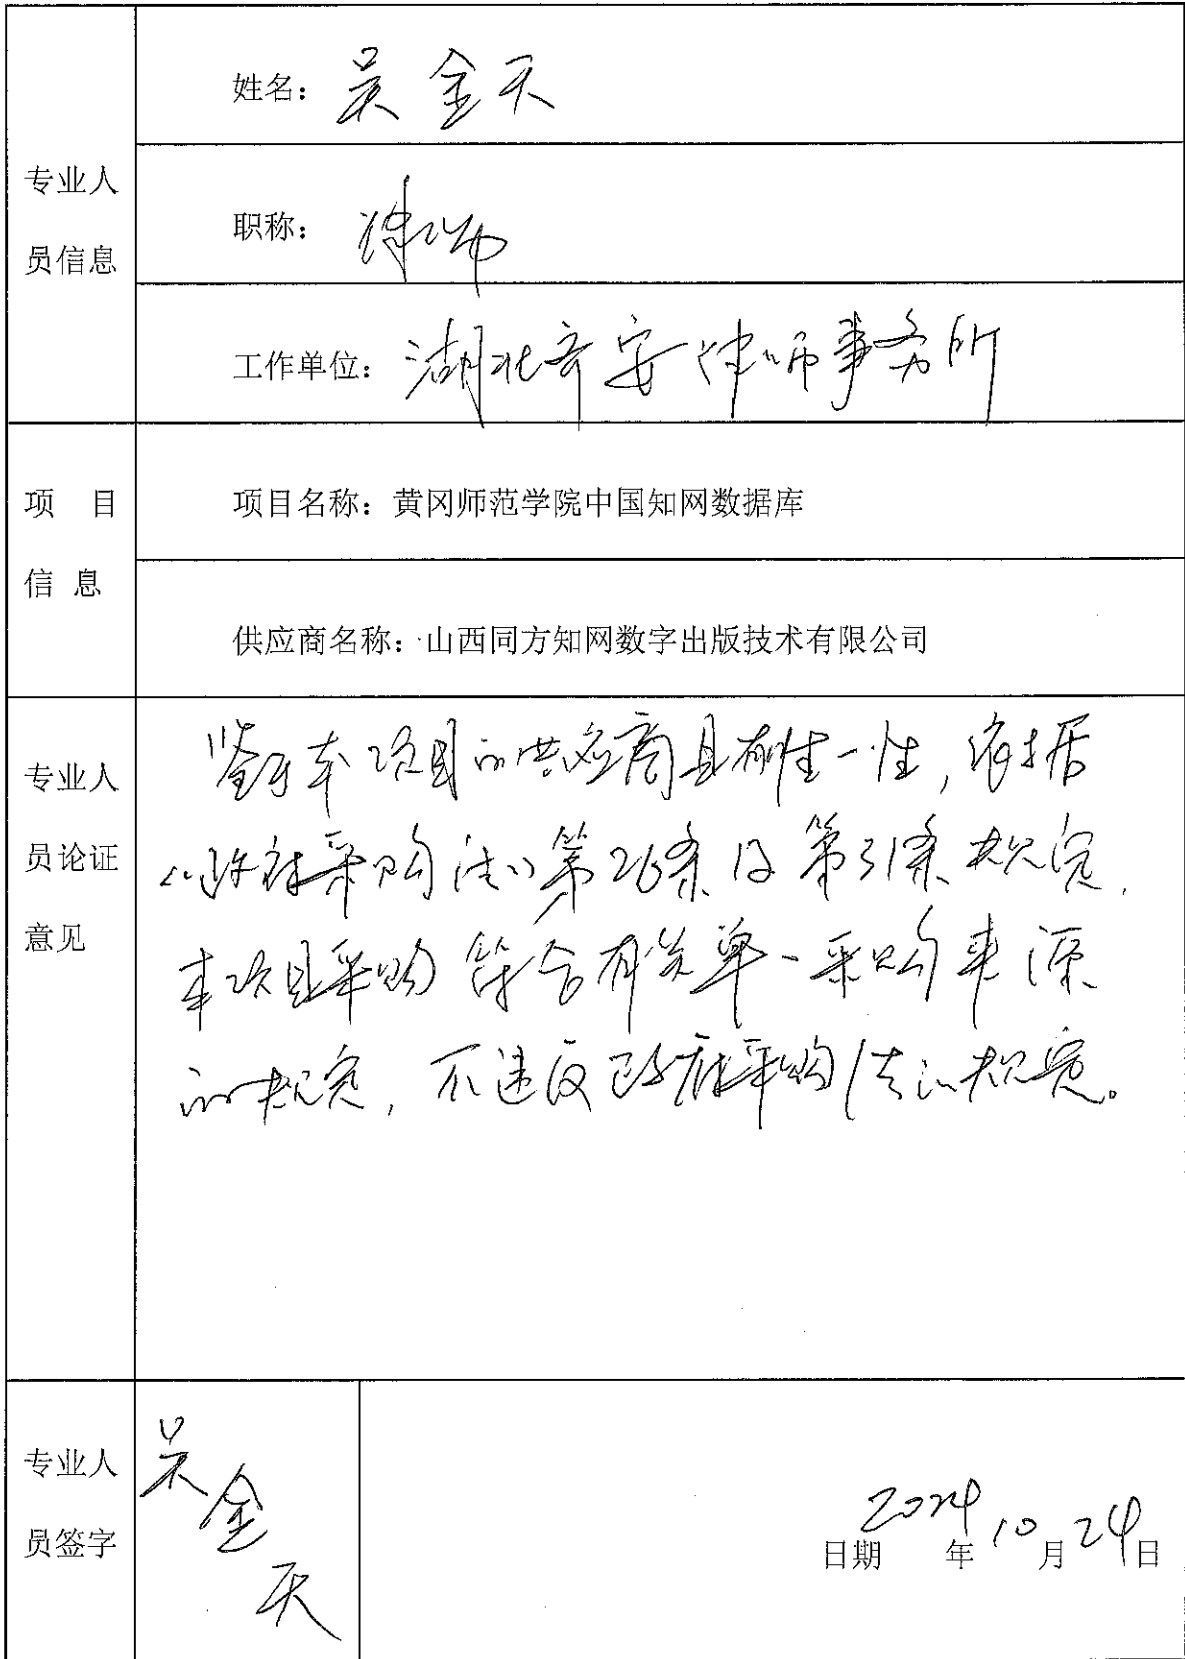 姓名：吴金天
专业人
员信息
职称：律师
工作单位：湖北齐安律师事务所
项 目
信 息
项目名称：黄冈师范学院中国知网数据库
供应商名称：山西同方知网数字出版技术有限公司
专业人
员论证
意见
鉴于本项目的供应商具有唯一性，依据
《政府采购法》第26条及第31条规定，
本项目采购符合有关单一采购来源
的规定，不违反政府采购法的规定。
专业人
员签字
吴金天
日期 2024年10月24日